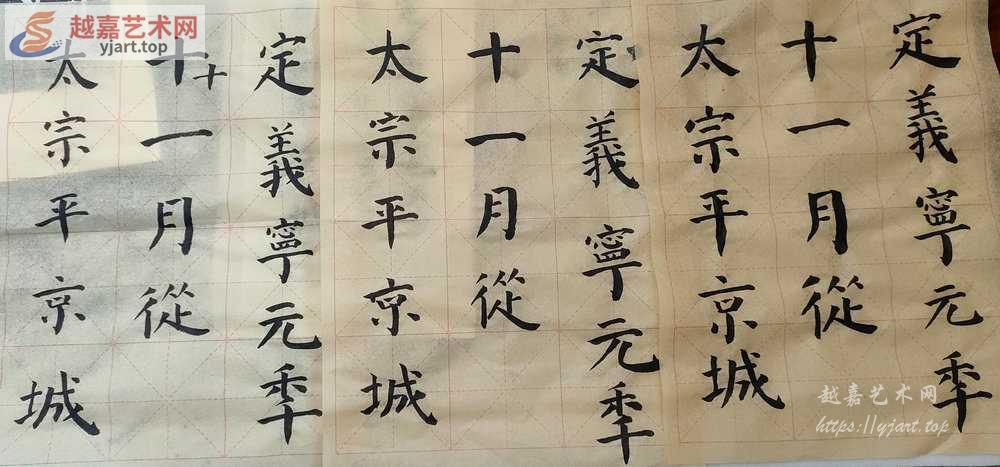 定義寧元秊
十一月從
太宗平京城
定義寧元秊
十一月從
太宗平京城
定義寧元秊
十十一月從
太宗平京城
越嘉艺术网
yjart.top
越嘉艺术网
https://yjart.top